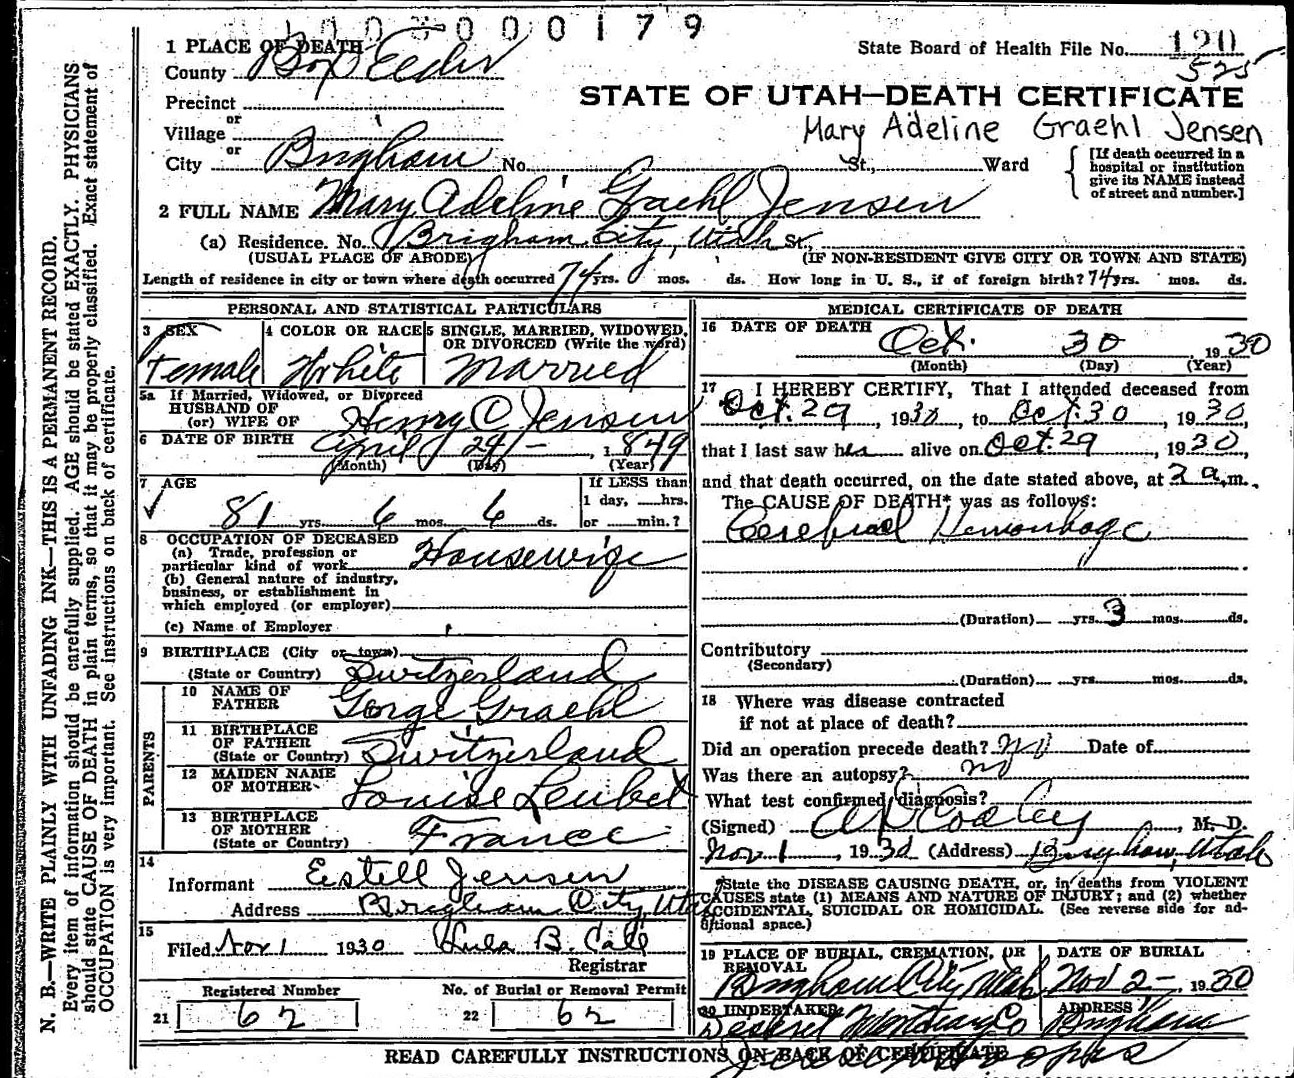 0 0 0 0 0 1 7 9
1 PLACE OF DEATH
County Box Elder
State Board of Health File No. 120
525
Precinct
or
Village
or
City Brigham No. St., Ward
STATE OF UTAH—DEATH CERTIFICATE
Mary Adeline Graehl Jensen
[If death occurred in a
hospital or institution
give its NAME instead
of street and number.]
2 FULL NAME Mary Adeline Graehl Jensen
(a) Residence. No. Brigham City, Utah St.,
(USUAL PLACE OF ABODE) (IF NON-RESIDENT GIVE CITY OR TOWN AND STATE)
Length of residence in city or town where death occurred 74 yrs. mos. ds. How long in U. S., if of foreign birth? 74 yrs. mos. ds.
PERSONAL AND STATISTICAL PARTICULARS
3 SEX
Female
4 COLOR OR RACE
White
5 SINGLE, MARRIED, WIDOWED,
OR DIVORCED (Write the word)
Married
5a If Married, Widowed, or Divorced
HUSBAND OF
(or) WIFE OF Henry C Jensen
6 DATE OF BIRTH April 24 - , 1849
(Month) (Day) (Year)
7 AGE
81 yrs. 6 mos. 6 ds.
If LESS than
1 day, hrs.
or min.?
8 OCCUPATION OF DECEASED
(a) Trade, profession or
particular kind of work Housewife
(b) General nature of industry,
business, or establishment in
which employed (or employer)
(c) Name of Employer
9 BIRTHPLACE (City or town)
(State or Country) Switzerland
PARENTS
10 NAME OF
FATHER George Graehl
11 BIRTHPLACE
OF FATHER
(State or Country) Switzerland
12 MAIDEN NAME
OF MOTHER Louise Leubet
13 BIRTHPLACE
OF MOTHER
(State or Country) France
14
Informant Estell Jensen
Address Brigham City, Utah
15
Filed Nov 1 1930 Lula B. Call
Registrar
Registered Number
21 62
No. of Burial or Removal Permit
22 62
MEDICAL CERTIFICATE OF DEATH
16 DATE OF DEATH
Oct. 30 1930
(Month) (Day) (Year)
17 I HEREBY CERTIFY, That I attended deceased from
Oct. 29, 1930, to Oct. 30, 1930,
that I last saw her alive on Oct. 29, 1930,
and that death occurred, on the date stated above, at 2 a.m.
The CAUSE OF DEATH* was as follows:
Cerebral Hemorrhage
(Duration) yrs. 3 mos. ds.
Contributory
(Secondary)
(Duration) yrs. mos. ds.
18 Where was disease contracted
if not at place of death?
Did an operation precede death? no Date of
Was there an autopsy? no
What test confirmed diagnosis?
(Signed) Cooley, M. D.
Nov 1, 1930 (Address) Brigham, Utah
*State the DISEASE CAUSING DEATH, or, in deaths from VIOLENT
CAUSES state (1) MEANS AND NATURE OF INJURY; and (2) whether
ACCIDENTAL, SUICIDAL OR HOMICIDAL. (See reverse side for ad-
ditional space.)
19 PLACE OF BURIAL, CREMATION, OR
REMOVAL
Brigham City, Utah
DATE OF BURIAL
Nov 2 - 1930
20 UNDERTAKER
Deseret Mortuary Co
ADDRESS
Brigham
READ CAREFULLY INSTRUCTIONS ON BACK OF CERTIFICATE
N. B.—WRITE PLAINLY WITH UNFADING INK—THIS IS A PERMANENT RECORD.
Every item of information should be carefully supplied. AGE should be stated EXACTLY. PHYSICIANS
should state CAUSE OF DEATH in plain terms, so that it may be properly classified. Exact statement of
OCCUPATION is very important. See instructions on back of certificate.